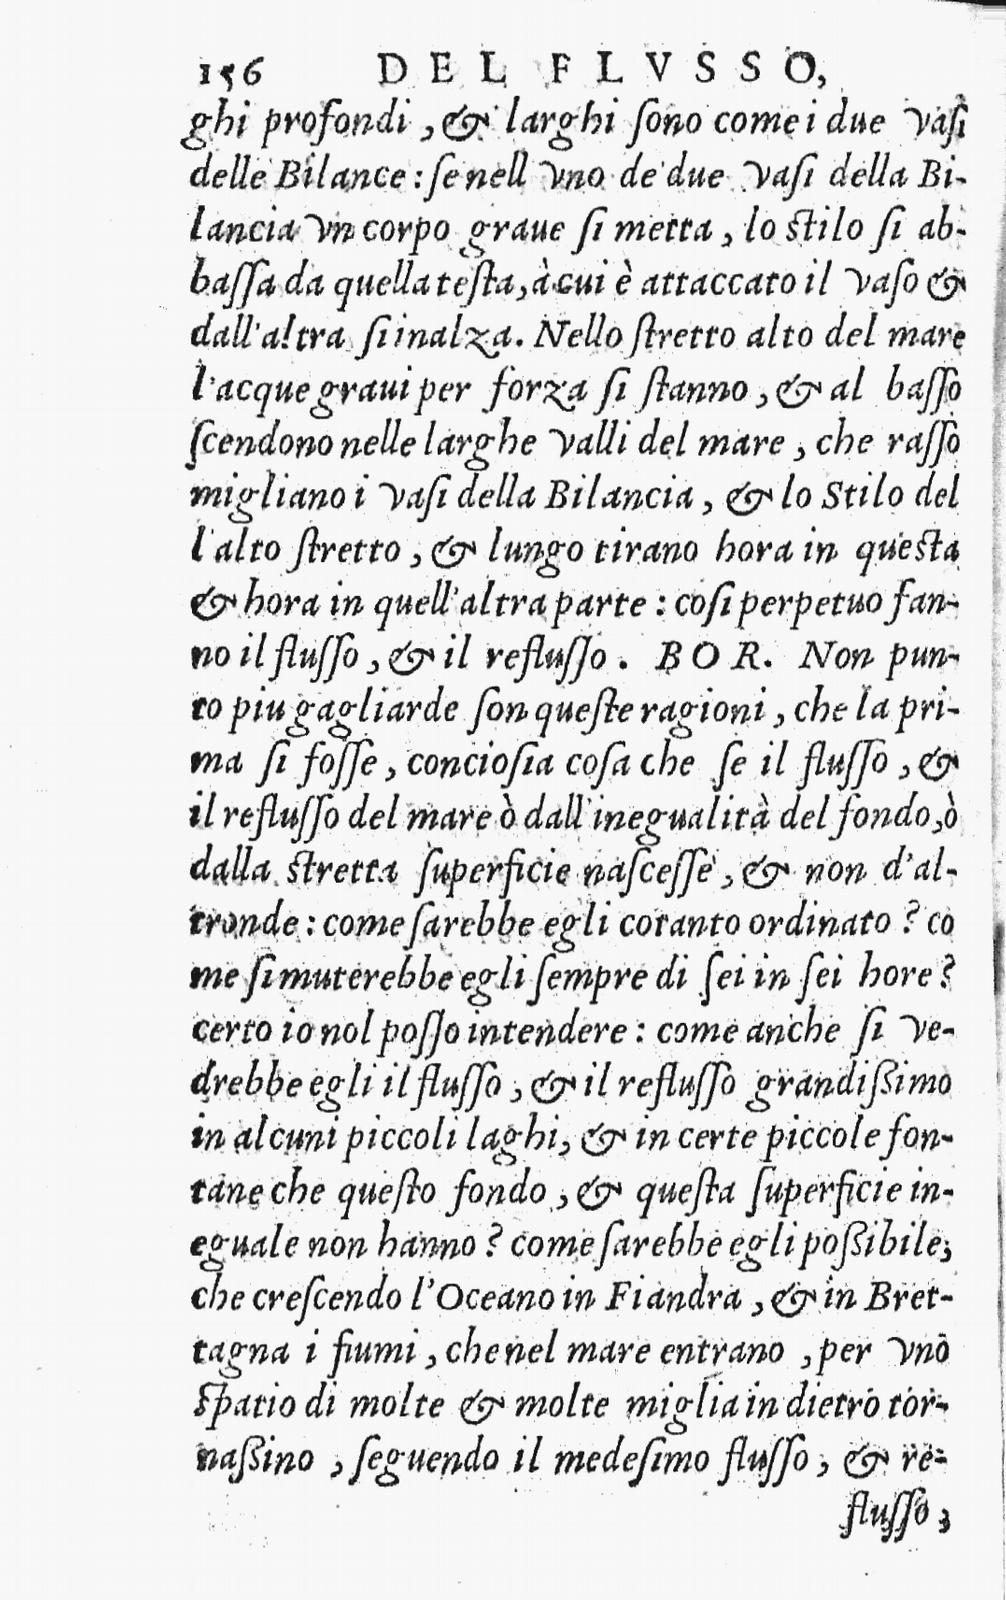 156 DEL FLVSSO,
ghi profondi, & larghi ſono come i due vaſi
delle Bilance: ſe nell vno de' due vaſi della Bi-
lancia vn corpo graue ſi metta, lo ſtilo ſi ab-
baſſa da quella teſta, à cui è attaccato il vaſo &
dall'altra ſi inalza. Nello ſtretto alto del mare
l'acque graui per forza ſi ſtanno, & al baſſo
ſcendono nelle larghe valli del mare, che raſſo
migliano i vaſi della Bilancia, & lo Stilo del
l'alto ſtretto, & lungo tirano hora in queſta
& hora in quell'altra parte: coſi perpetuo fan-
no il fluſſo, & il refluſſo. BOR. Non pun-
to piu gagliarde ſon queſte ragioni, che la pri-
ma ſi foſſe, concioſia coſa che ſe il fluſſo, &
il refluſſo del mare ò dall'inegualità del fondo, ò
dalla ſtretta ſuperficie naſceſſe, & non d'al-
tronde: come ſarebbe egli cotanto ordinato? co
me ſi muterebbe egli ſempre di ſei in ſei hore?
certo io nol poſſo intendere: come anche ſi ve-
drebbe egli il fluſſo, & il refluſſo grandißimo
in alcuni piccoli laghi, & in certe piccole fon-
tane che queſto fondo, & queſta ſuperficie in-
eguale non hanno? come ſarebbe egli poßibile,
che creſcendo l'Oceano in Fiandra, & in Bret-
tagna i fiumi, che nel mare entrano, per vno
ſpatio di molte & molte miglia in dietro tor-
naßino, ſeguendo il medeſimo fluſſo, & re-
fluſſo,